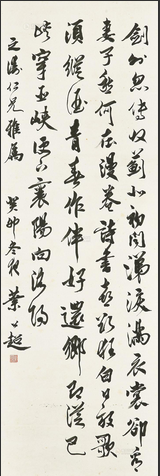 劍外忽傳收薊北初聞涕淚滿衣裳卻看
妻子愁何在漫卷詩書喜欲狂白日放歌
須縱酒青春作伴好還鄉即從巴
峽穿巫峽便下襄陽向洛陽
之濤仁兄雅屬 癸卯冬月 葉公超